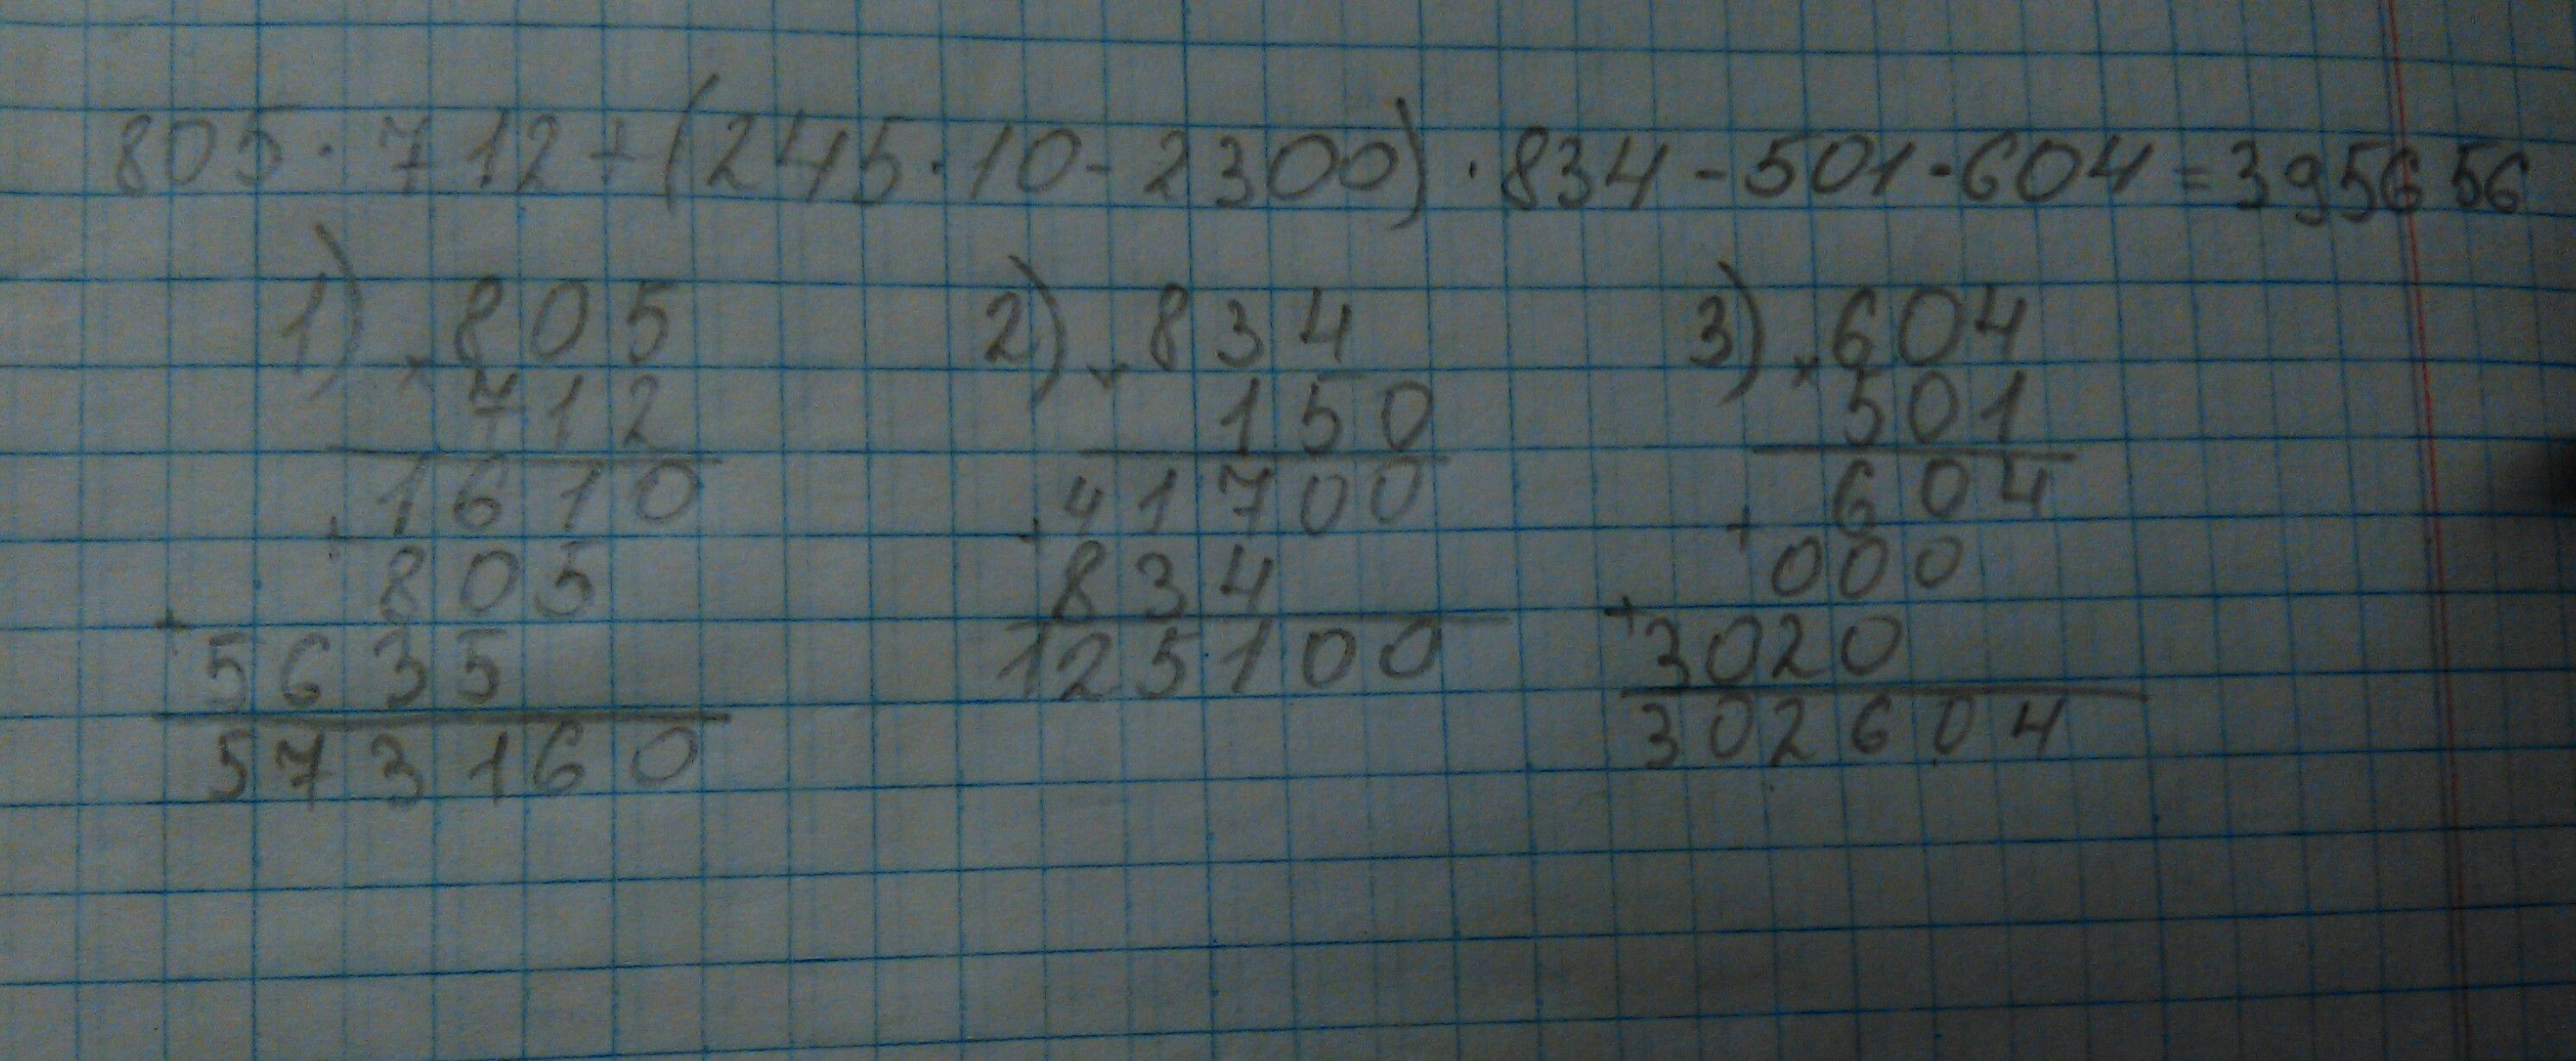 805·712+(245·10-2300)·834-501·604=395656
1) ×805
712
1610
+
805
+
5635
573160
2) ×834
150
41700
+
834
125100
3) ×604
501
604
+
000
+
3020
302604